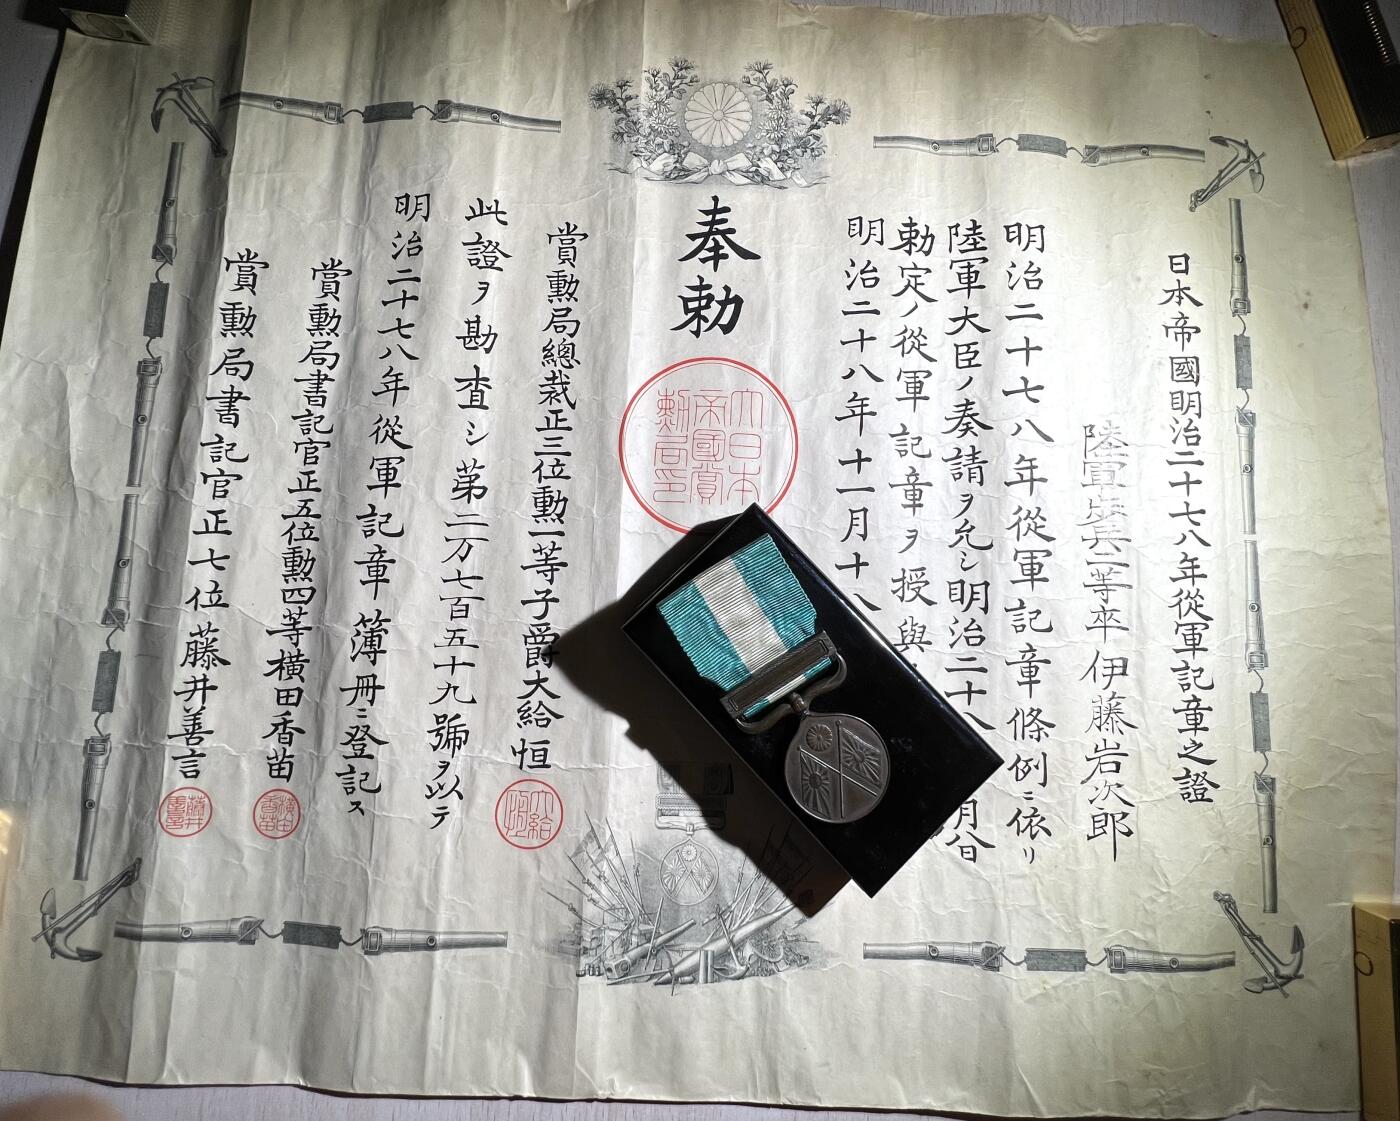 日本帝國明治二十七八年從軍記章之證
陸軍歩兵二等卒伊藤岩次郎
明治二十七八年從軍記章條例ニ依リ
陸軍大臣ノ奏請ヲ允シ明治二十八
勅定ノ從軍記章ヲ授與
明治二十八年十一月十八
奉勅
大日本
帝國賞
勲局印
賞勲局總裁正三位勲一等子爵大給恒
大給
恒
此證ヲ勘査シ第二万七百五十九號ヲ以テ
明治二十七八年從軍記章簿冊ニ登記ス
賞勲局書記官正五位勲四等横田香苗
横田
香苗
賞勲局書記官正七位藤井善言
藤井
善言